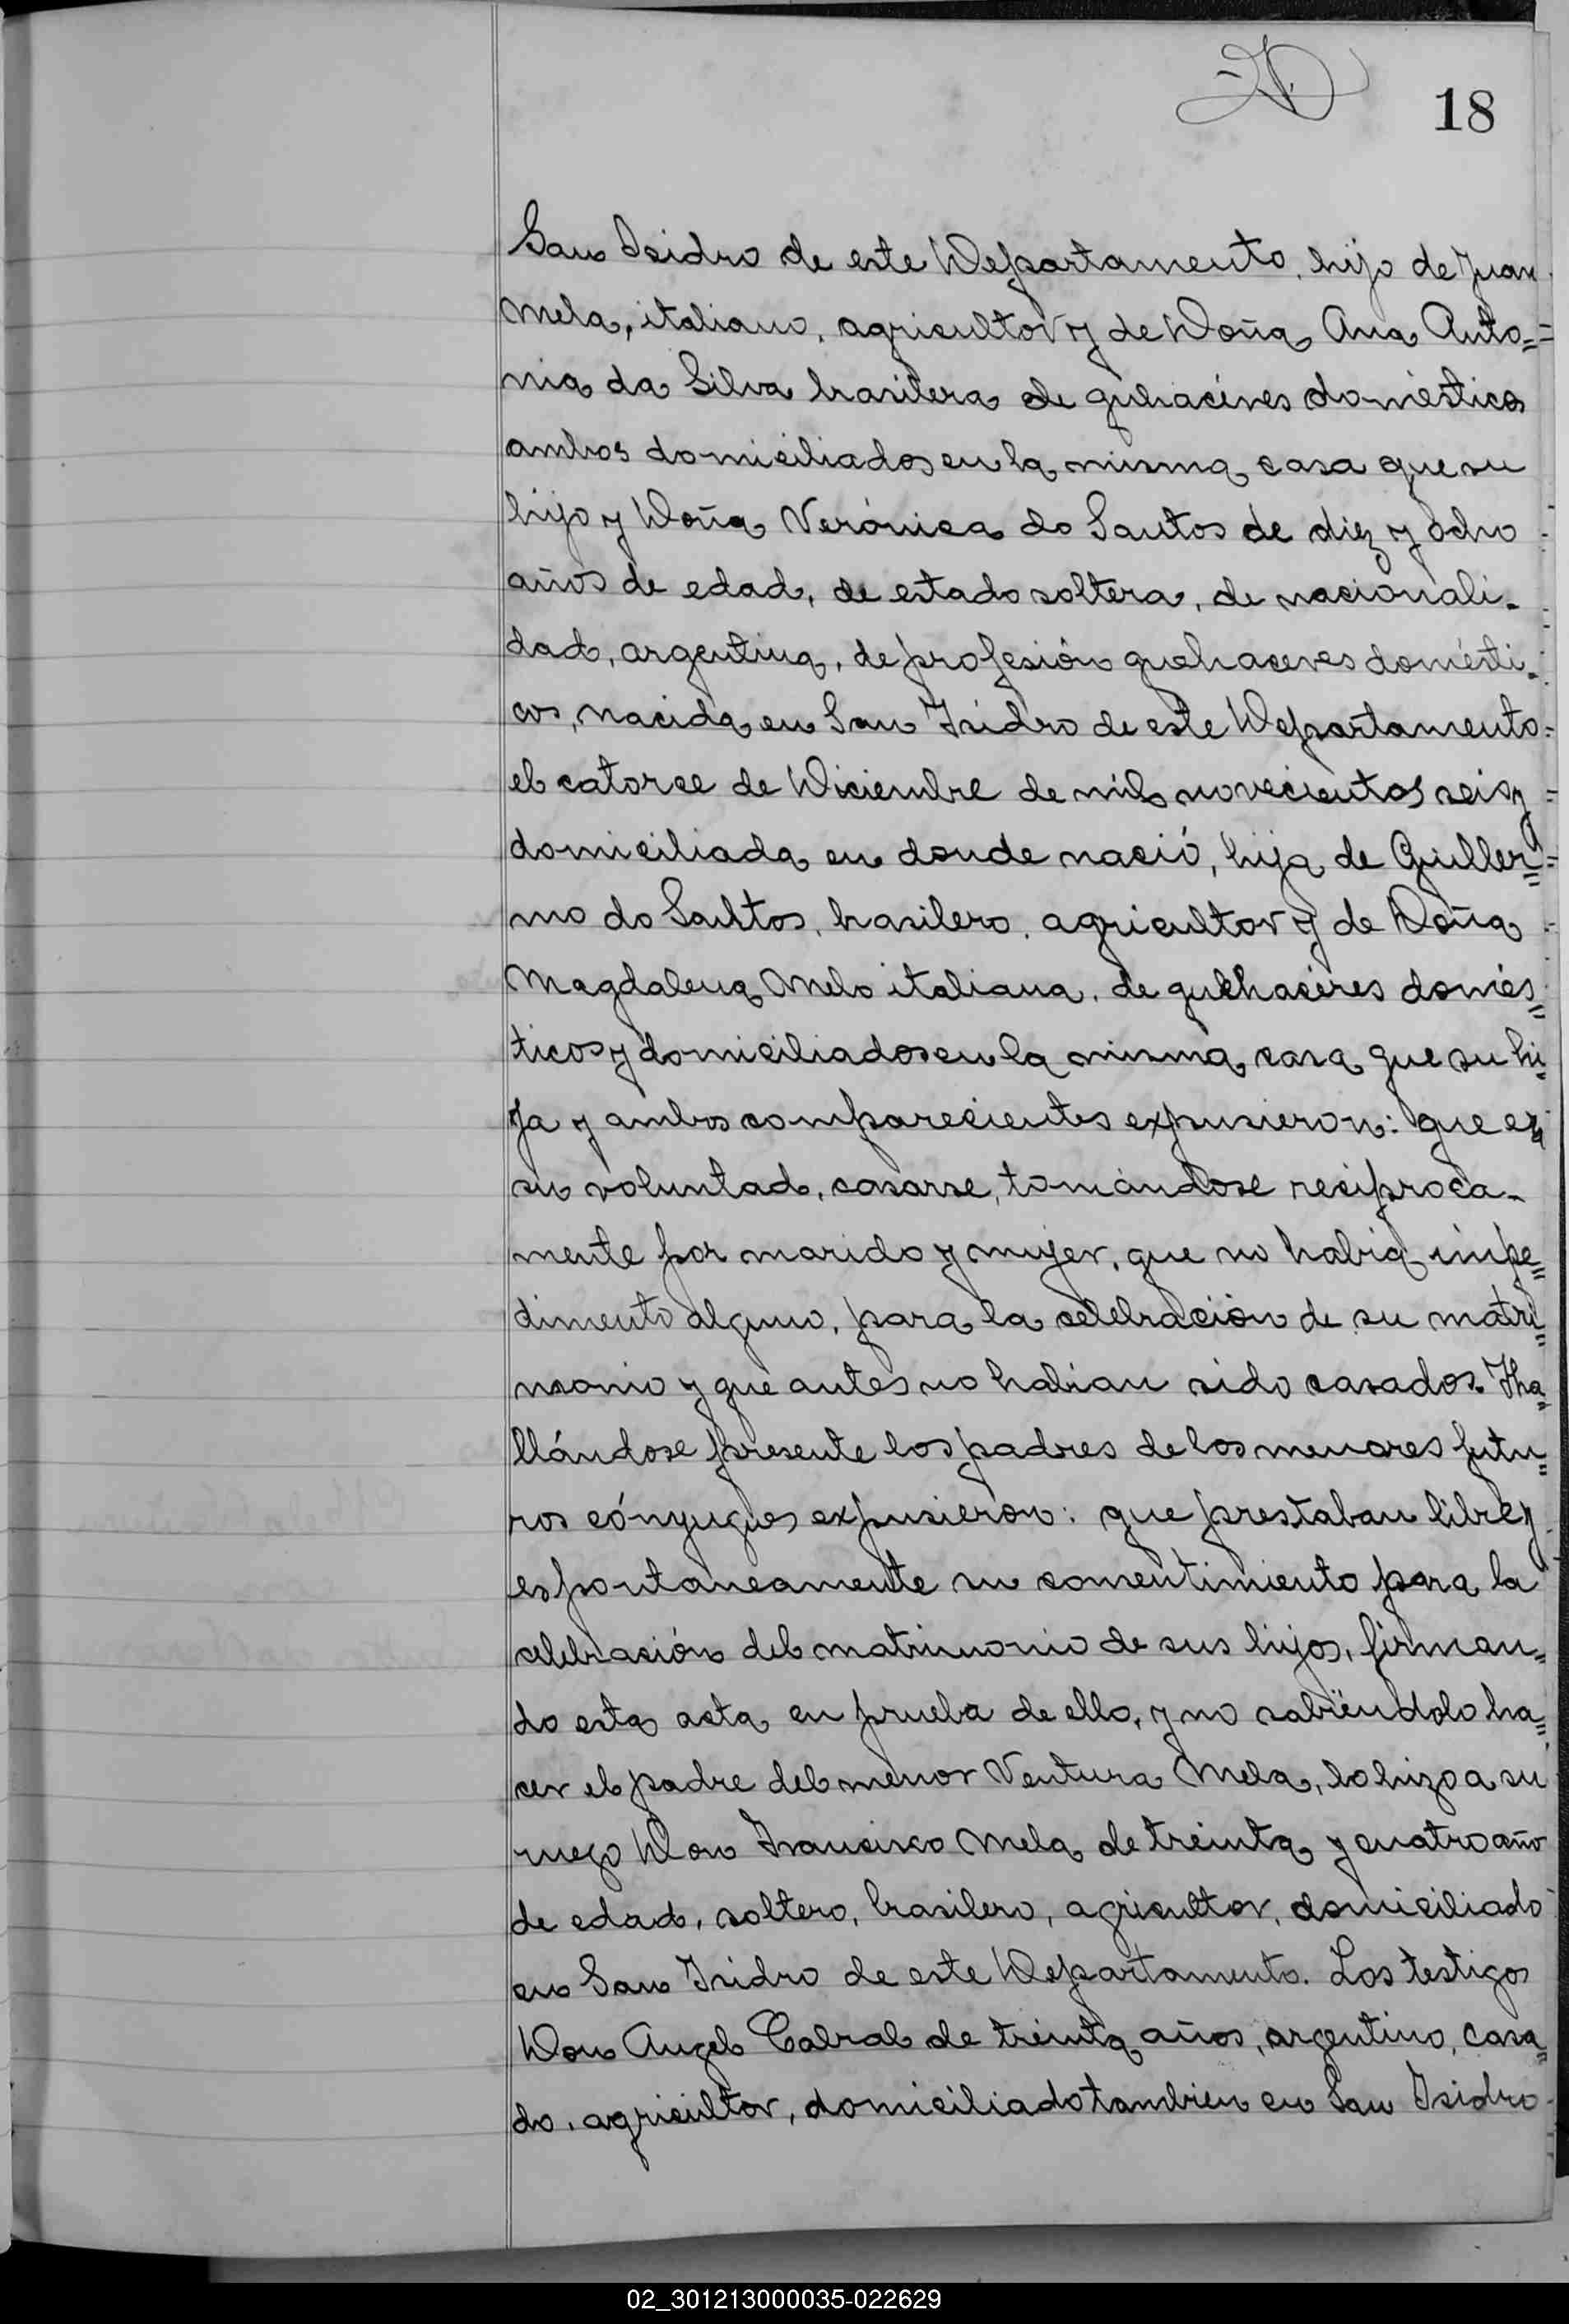 18
San Isidro de este Departamento, hijo de Juan
Mela, italiano, agricultor y de Doña Ana Anto=
nia da Silva brasilera de quehacéres domésticos
ambos domiciliados en la misma casa que su
hijo y Doña Verónica do Santos de diez y ocho
años de edad, de estado soltera, de nacionali-
dad, argentina, de profesión quehaceres domésti-
cos, nacida en San Isidro de este Departamento
el catorce de Diciembre de mil novecientos seis y
domiciliada en donde nació, hija de Guiller=
mo do Santos, brasilero, agricultor y de Doña
Magdalena Melo italiana, de quehacéres domés=
ticos y domiciliados en la misma casa que su hi=
ja y ambos comparecientes expusieron: que es
su voluntad, casarse, tomándose recíproca-
mente por marido y mujer, que no había impe=
dimento alguno, para la celebración de su matri=
monio y que antes no habian sido casados. Ha=
llándose presente los padres de los menores futu=
ros cónyuges expusieron: que prestaban libre y
espontaneamente su consentimiento para la
celebrasión del matrimonio de sus hijos, firman=
do esta acta en prueba de ello, y no sabiéndolo ha=
cer el padre del menor Ventura Mela, lo hizo a su
ruego Don Francisco Mela de treinta y cuatro año
de edad, soltero, brasilero, agricultor, domiciliado
en San Isidro de este Departamento. Los testigos
Don Angel Cabral de treinta años, argentino, casa=
do, agricultor, domiciliado tambien en San Isidro
02_301213000035-022629